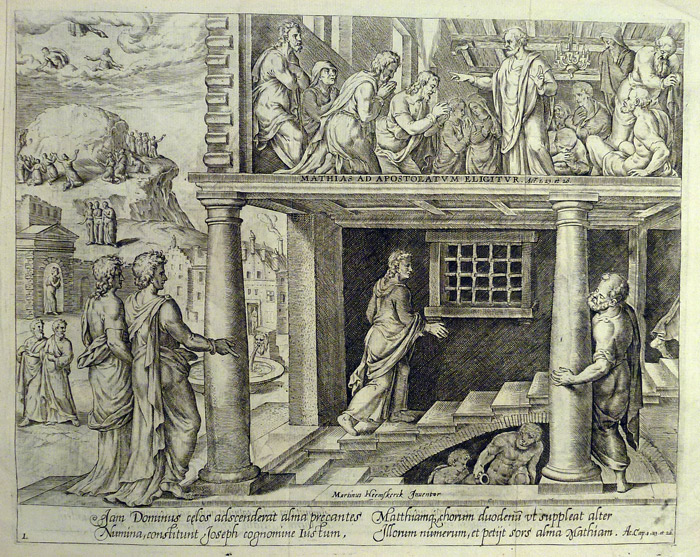 MATHIAS AD APOSTOLATVM ELIGITVR. Act. 1. 23. et. 26.
Martinus Hèemskerck Inventor
Jam Dominus cęlos adscenderat alma precantes
Numina, constitunt Joseph cognomine Iustum,
Matthiamq, chorum duodenū vt suppleat alter
Illorum numerum, et petijt sors alma Mathiam. Ac. Cap. 1. 23. et. 26.
1.